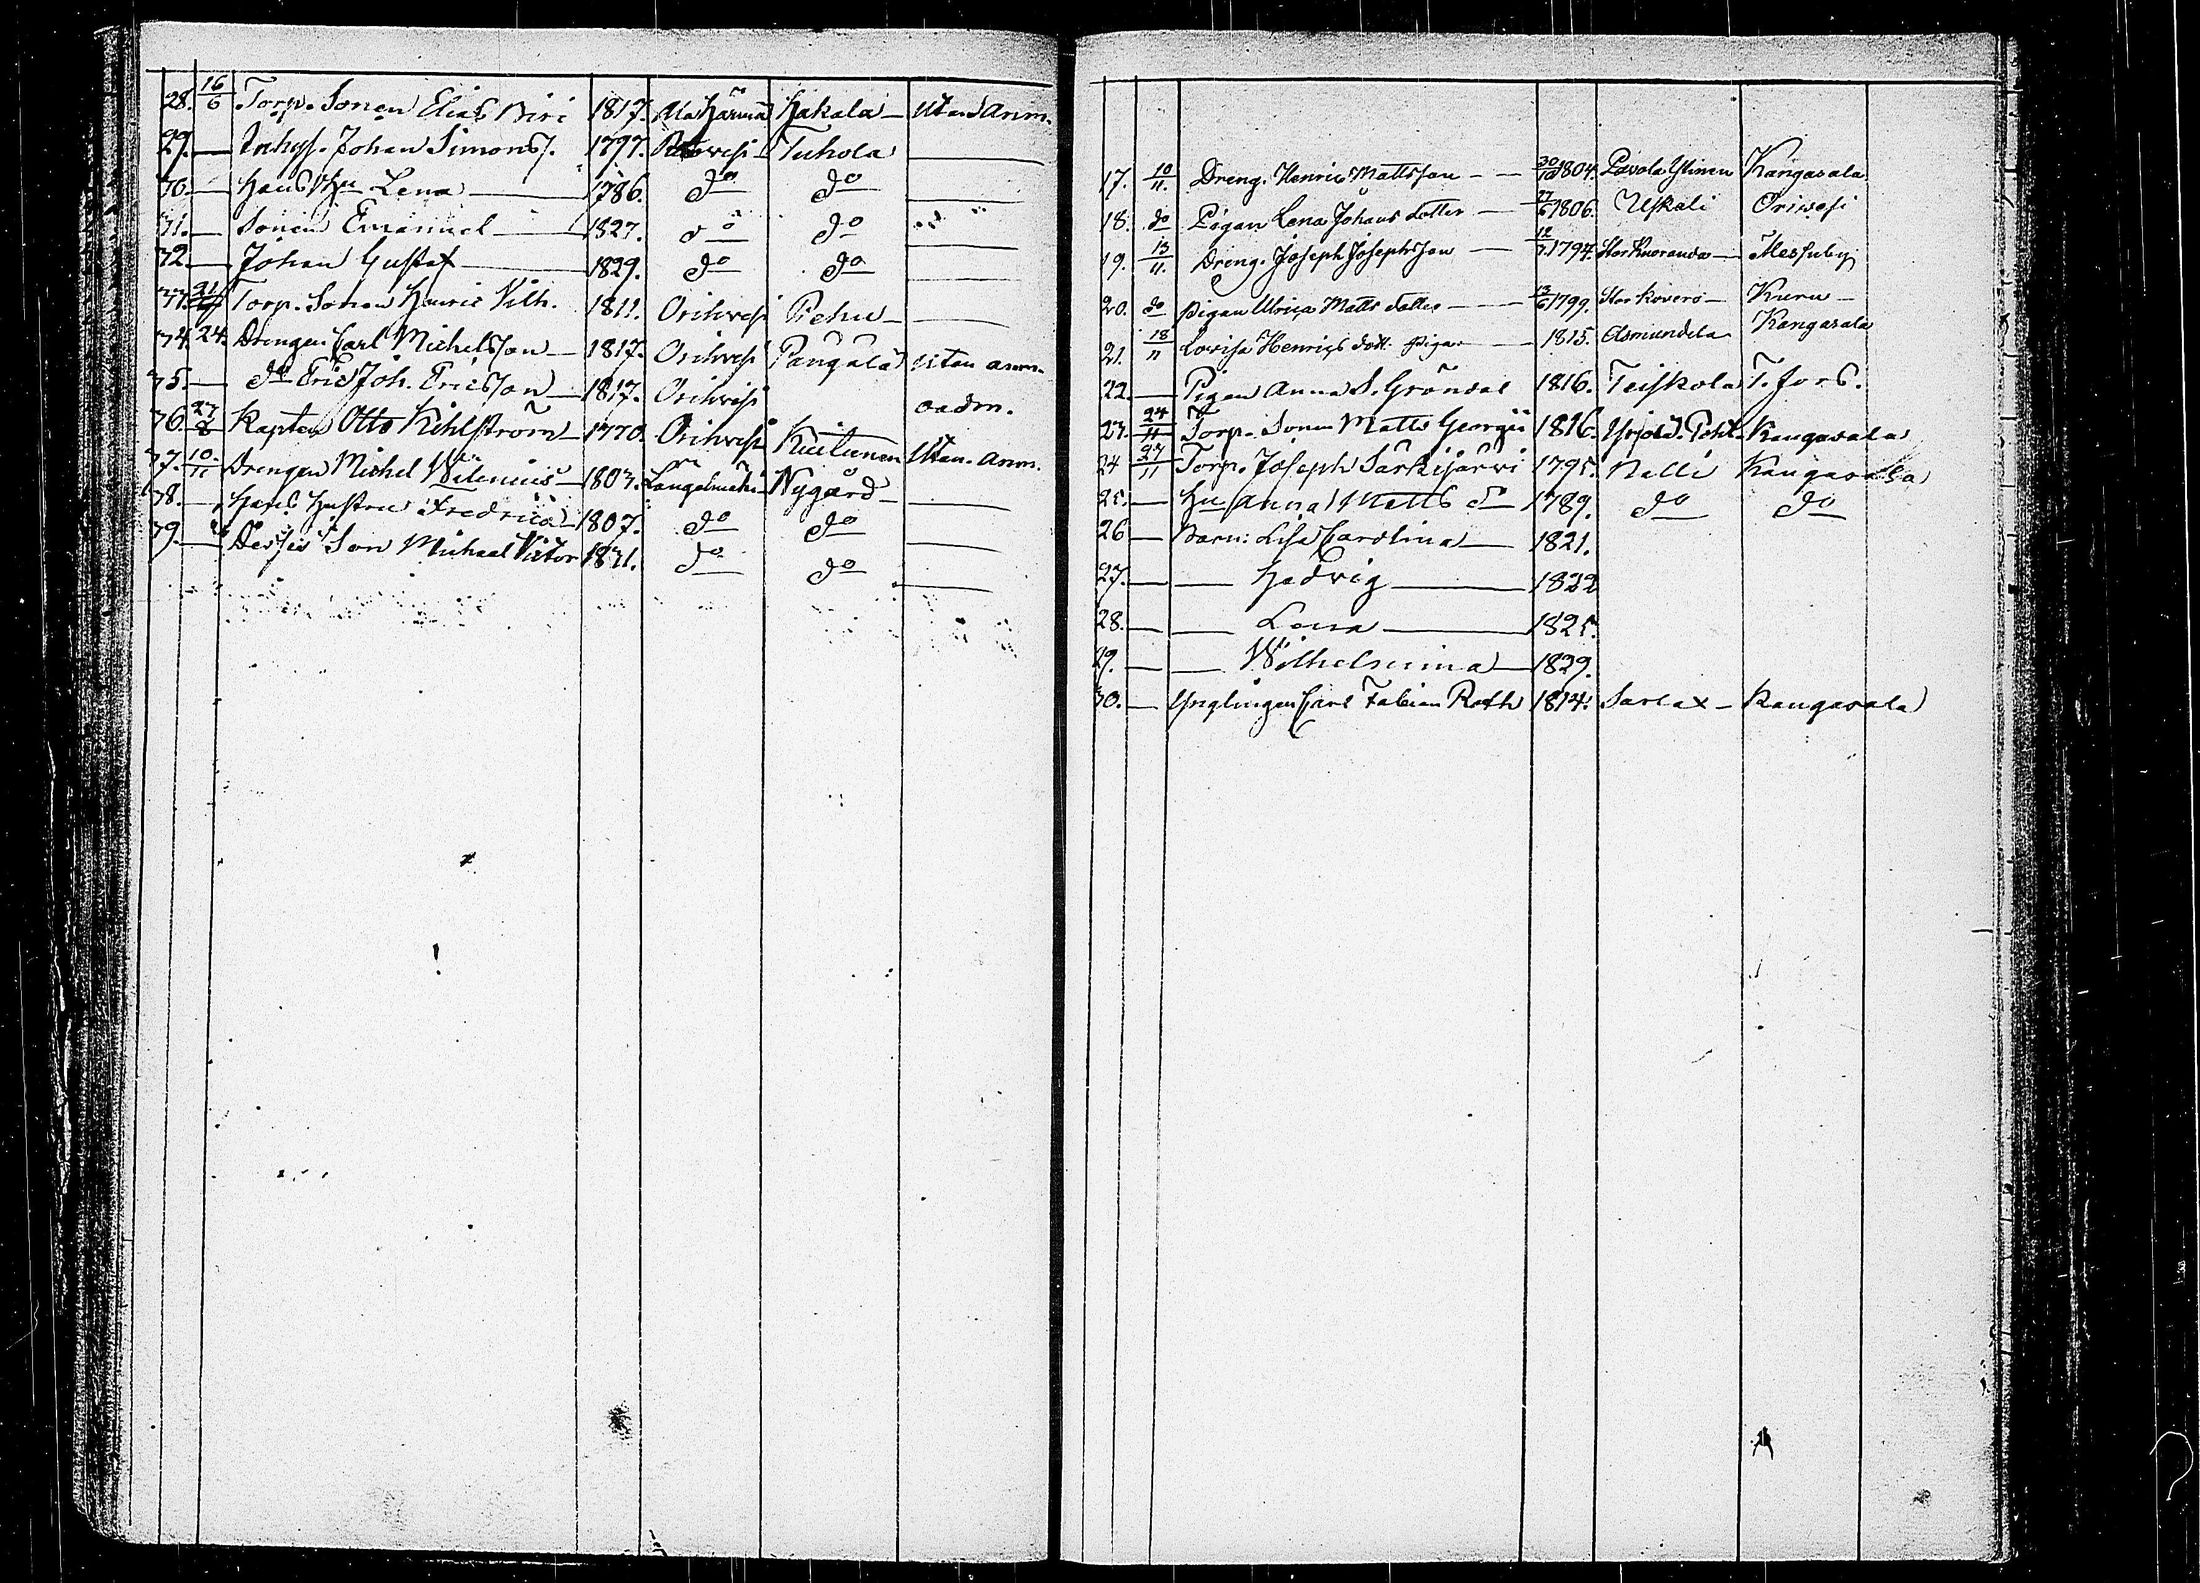 28. 16/6 Torp. Sonen Elias Biri 1817. Ala Härmä Hakala Utan Anm.
29. — Inhys. Johan Simonss. 1797. Tuhola —
30. — Hans Hu Lena 1786. do do —
31. — Sonen Emanuel 1827. do do —
32. — Johan Gustaf 1829. do do —
33. Torp. Sonen Henric Vilh. 1811. Orihvesi Piehu —
34. 24. Drengen Carl Michelsson 1817. Orihvesi Pangala utan anm.
35. — do Eric Joh. Ericsson 1817. Orihvesi oadm.
36. 27/8 Kapten Otto Kihlström 1770. Orihvesi Kuitunen Utan Anm.
37. 10/11 Drengen Michel Wilenius 1803. Längelmäki Nygård —
38. — Hans Hustru Fredrica 1807. do do —
39. — Desses Son Michael Victor 1831. do do —
17. 10/11. Dreng. Henric Mattsson 30/10 1804. Pavola Ylinen Kangasala
18. do Pigan Lena Johans dotter 27/6 1806. Uskali Oriwesi
19. 13/11. Dreng. Joseph Josephsson 12/3 1794. Messuby
20. do Pigan Ulrica Matts dotter 13/6 1799. Stor Koverо Kuru
21. 18/11 Lovisa Henrics dott. Piga 1815. Asmundela Kangasala
22. — Pigan Anna S. Gröndal 1816. Teiskola T. Fors.
23. 24/11 Torp. Sonen Matts Georgii 1816. Kangasala
24 27/11 Torp. Joseph Särkijärvi 1795. Nalli Kangasala
25. — Hu Anna Matts dr 1789. do do
26 — Barn: Lisa Carolina 1821.
27. — — Hedvig 1822
28. — — Lena 1825.
29. — — Wilhelmina 1829.
30. — Ynglingen Carl Fabian Roth 1814. Sarlax Kangasala